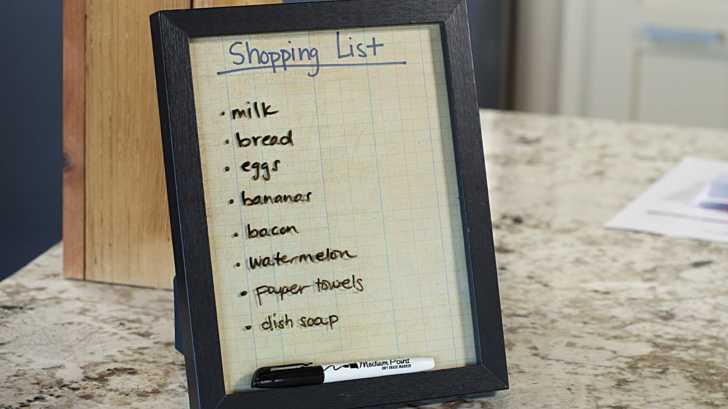 Shopping List
• milk
• bread
• eggs
• bananas
• bacon
• watermelon
• paper towels
• dish soap
Medium Point
DRY ERASE MARKER